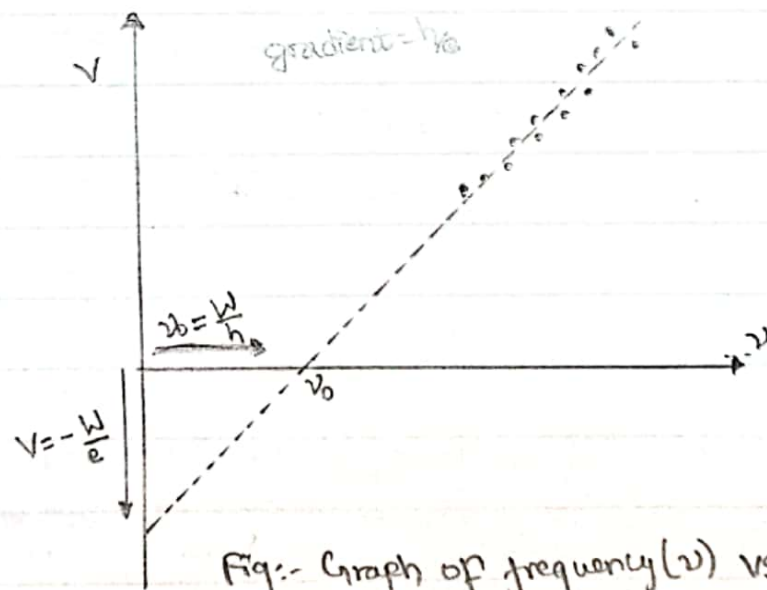 V
gradient = h/e
ν₀ = W/h
ν
ν₀
V = - W/e
Fig:- Graph of frequency(ν) vs